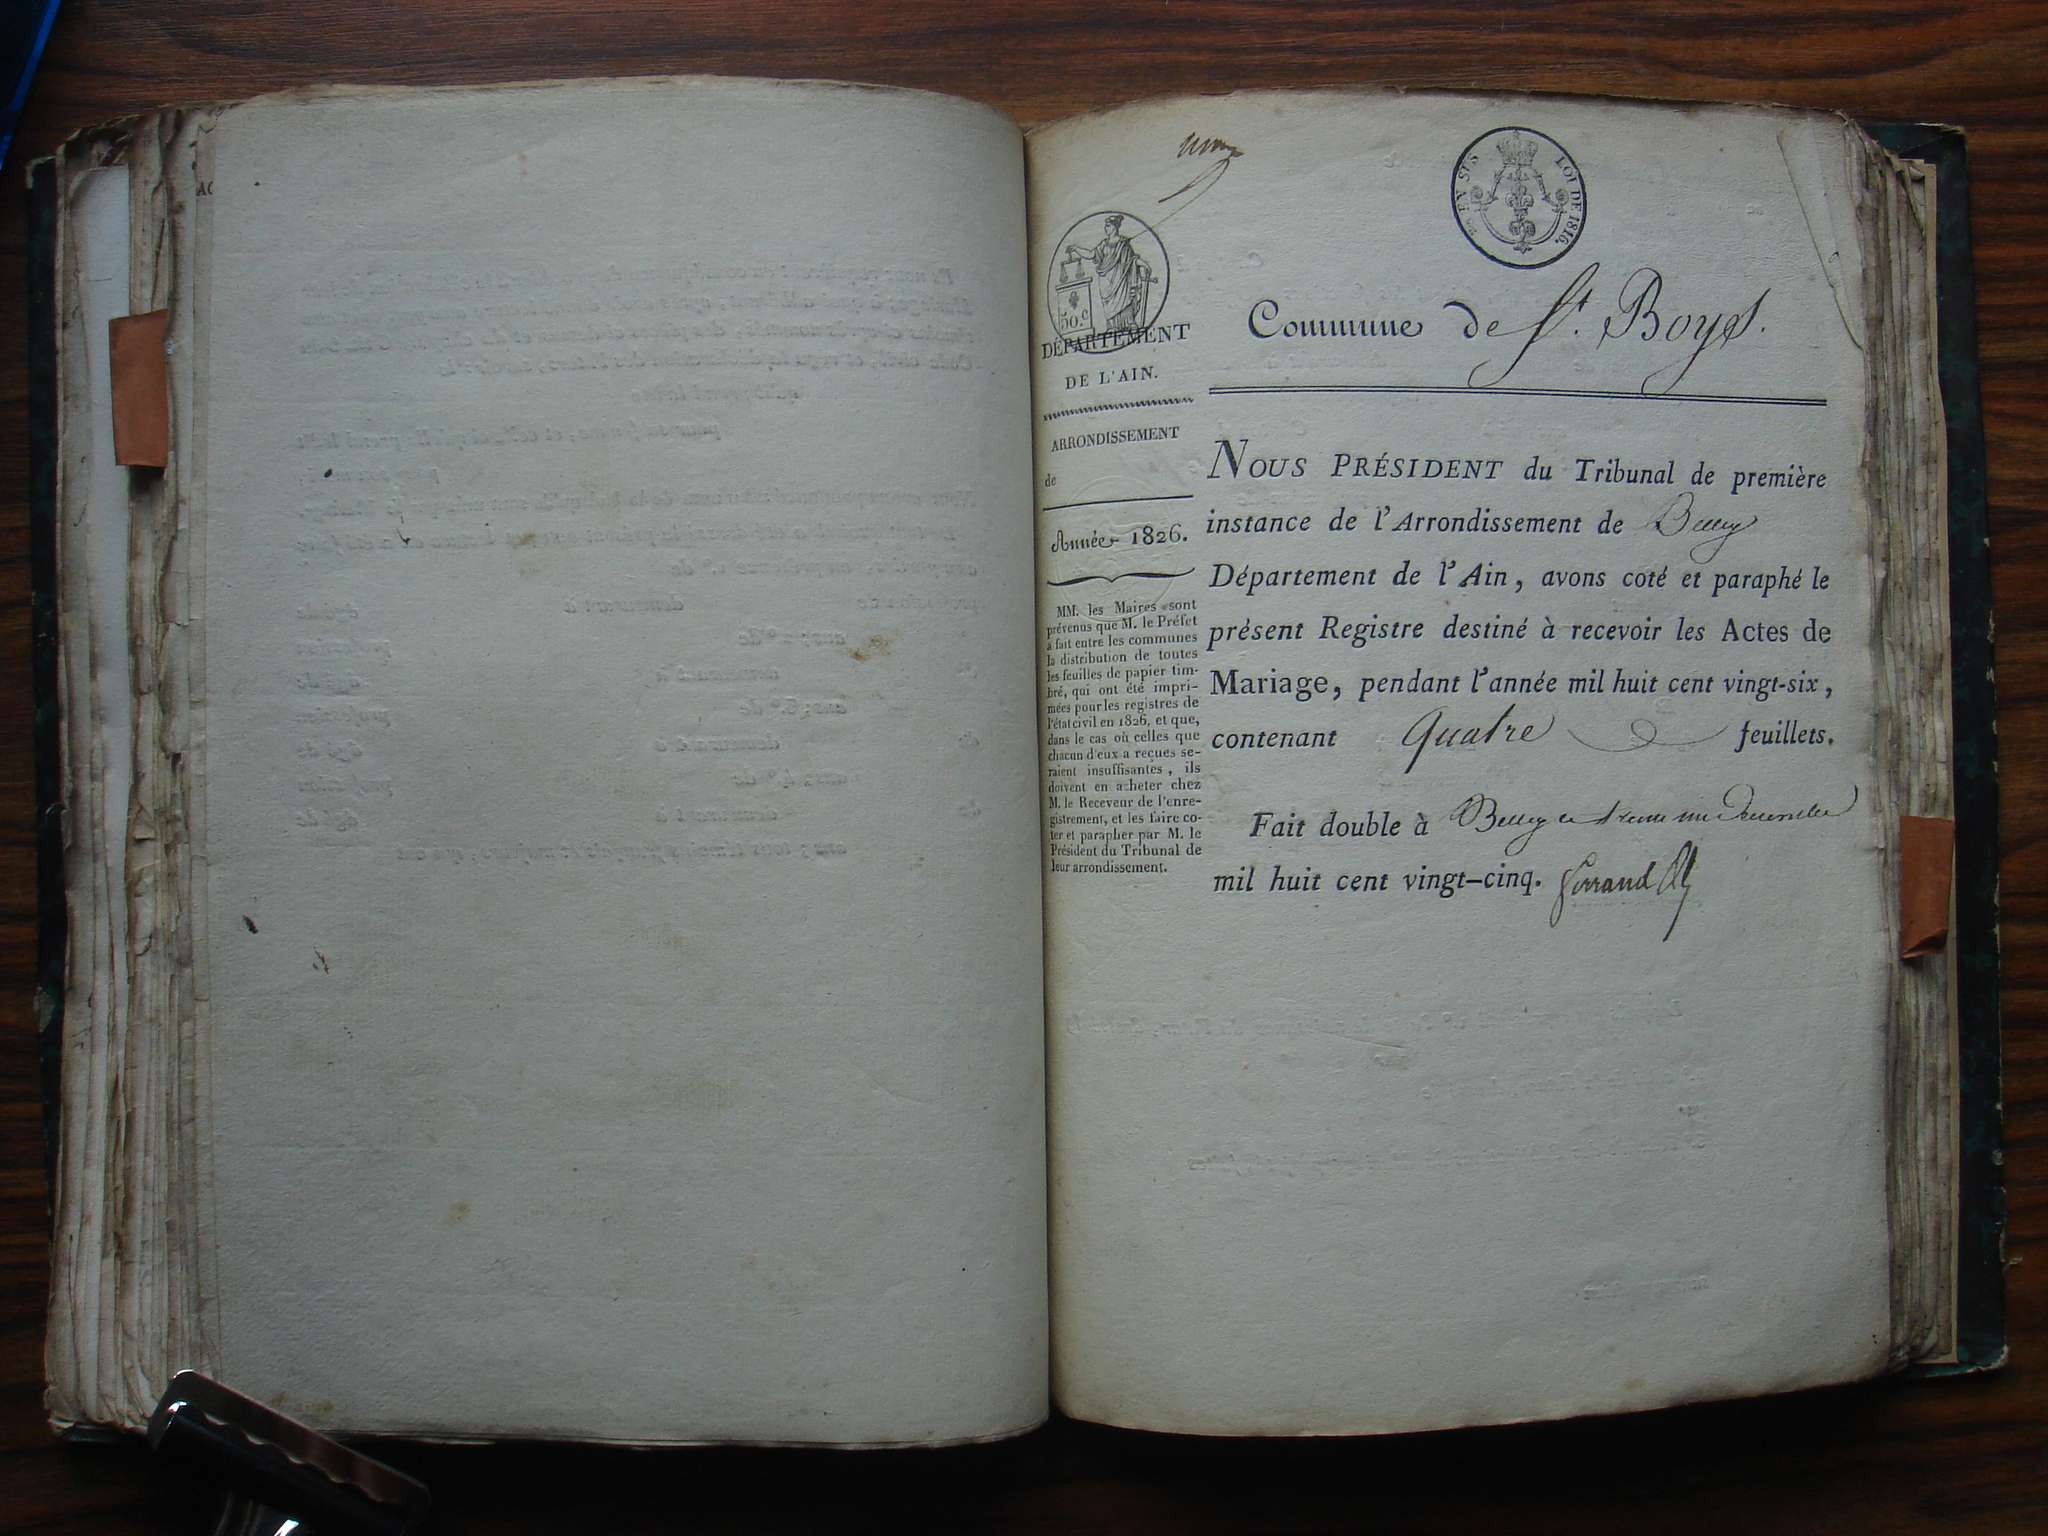 50.c
ET SUS LOI DE 1816.
DÉPARTEMENT
DE L'AIN.
ARRONDISSEMENT
de
Année 1826.
MM. les Maires sont
prévenus que M. le Préfet
a fait entre les communes
la distribution de toutes
les feuilles de papier tim-
bré, qui ont été impri-
mées pour les registres de
l'état civil en 1826, et que,
dans le cas où celles que
chacun d'eux a reçues se-
raient insuffisantes, ils
doivent en acheter chez
M. le Receveur de l'enre-
gistrement, et les faire co-
ter et parapher par M. le
Président du Tribunal de
leur arrondissement.
Commune de St. Boys.
NOUS PRÉSIDENT du Tribunal de première
instance de l'Arrondissement de Belley
Département de l'Ain, avons coté et paraphé le
présent Registre destiné à recevoir les Actes de
Mariage, pendant l'année mil huit cent vingt-six,
contenant Quatre feuillets.
Fait double à Belley
mil huit cent vingt-cinq.